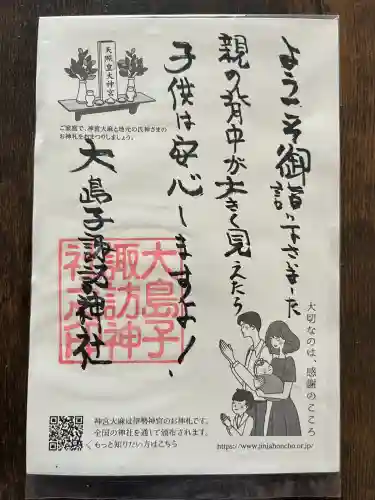 ようこそ御詣り下さいました
親の背中が大きく見えたら
子供は安心しますよ!
大島子諏訪神社
天照皇大神宮
ご家庭で、神宮大麻と地元の氏神さまの
お神札をおまつりしましょう。
大島子
諏訪神
社之印
大切なのは、感謝のこころ
神宮大麻は伊勢神宮のお神札です。
全国の神社を通して頒布されます。
もっと知りたい方はこちら
https://www.jinjahoncho.or.jp/